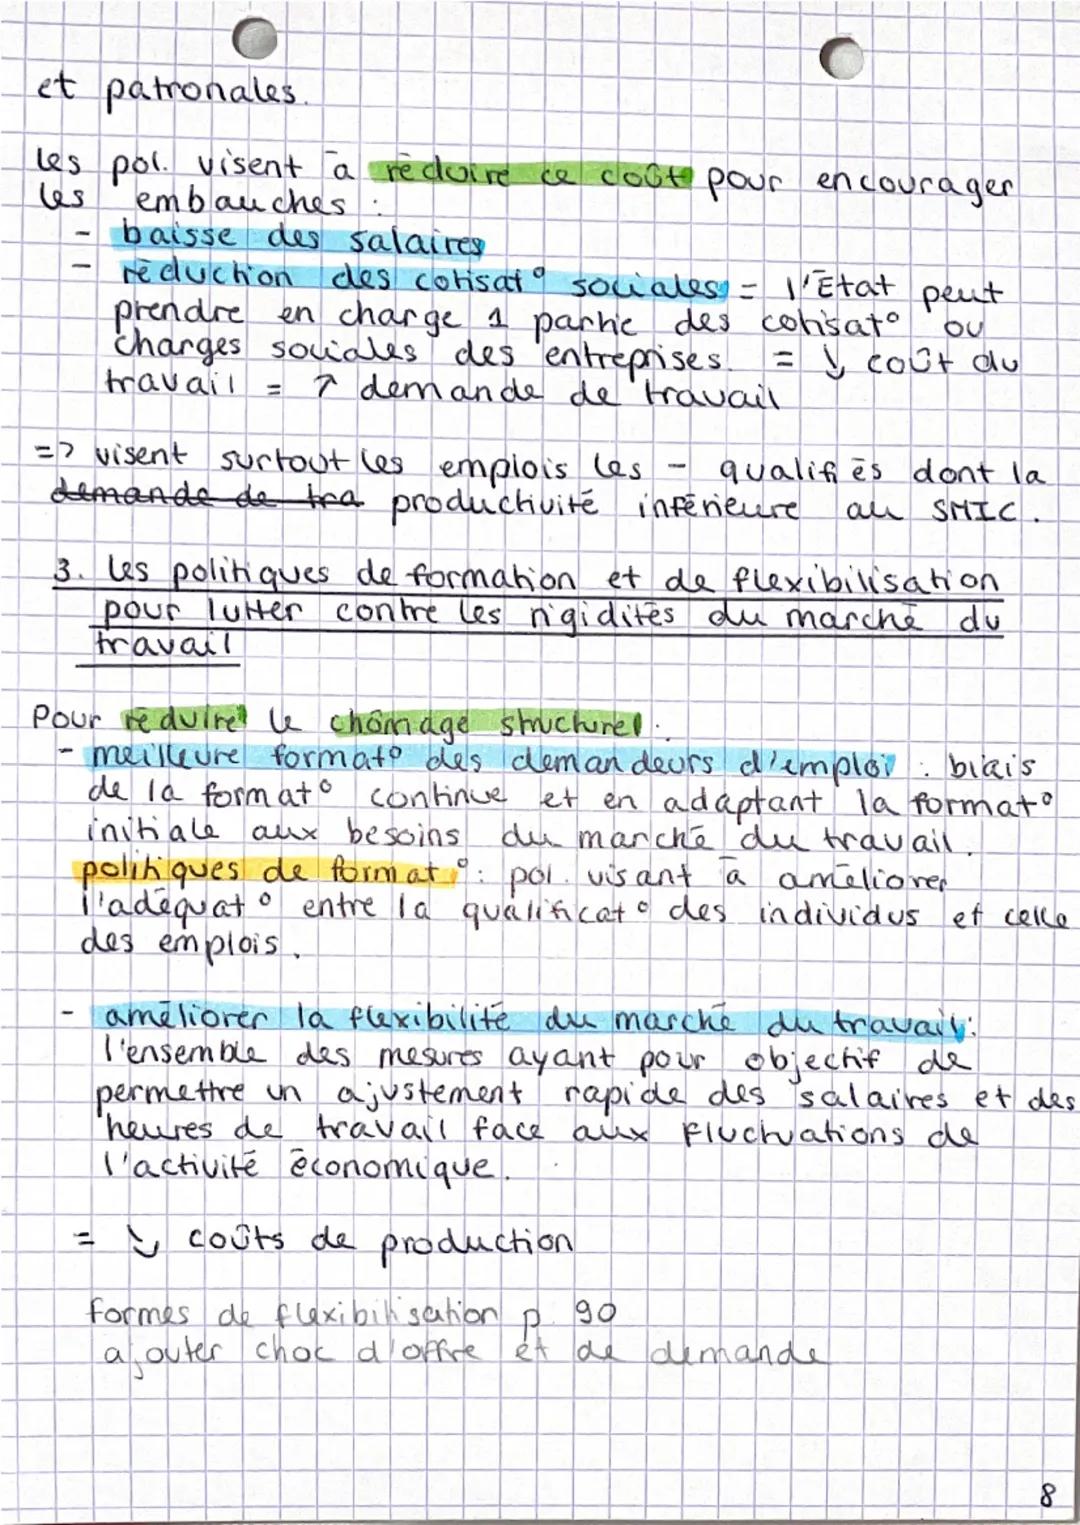 et patronales.
les pol. visent à réduire ce coût pour encourager
les embauches :
- baisse des salaires
- réduction des cotisat° sociales = l'État peut
prendre en charge 1 partie des cotisat° ou
charges sociales des entreprises. = ↘ coût du
travail = ↗ demande de travail
=> visent surtout les emplois les - qualifiés dont la
demande de tra productivité inférieure au SMIC.
3. les politiques de formation et de flexibilisation
pour lutter contre les rigidités du marché du
travail
Pour réduire le chômage structurel :
- meilleure format° des demandeurs d'emploi : biais
de la format° continue et en adaptant la format°
initiale aux besoins du marché du travail.
politiques de format° : pol. visant à améliorer
l'adéquat° entre la qualificat° des individus et celle
des emplois.
- améliorer la flexibilité du marché du travail :
l'ensemble des mesures ayant pour objectif de
permettre un ajustement rapide des salaires et des
heures de travail face aux fluctuations de
l'activité économique.
= ↘ coûts de production
formes de flexibilisation p. 90
ajouter choc d'offre et de demande
8